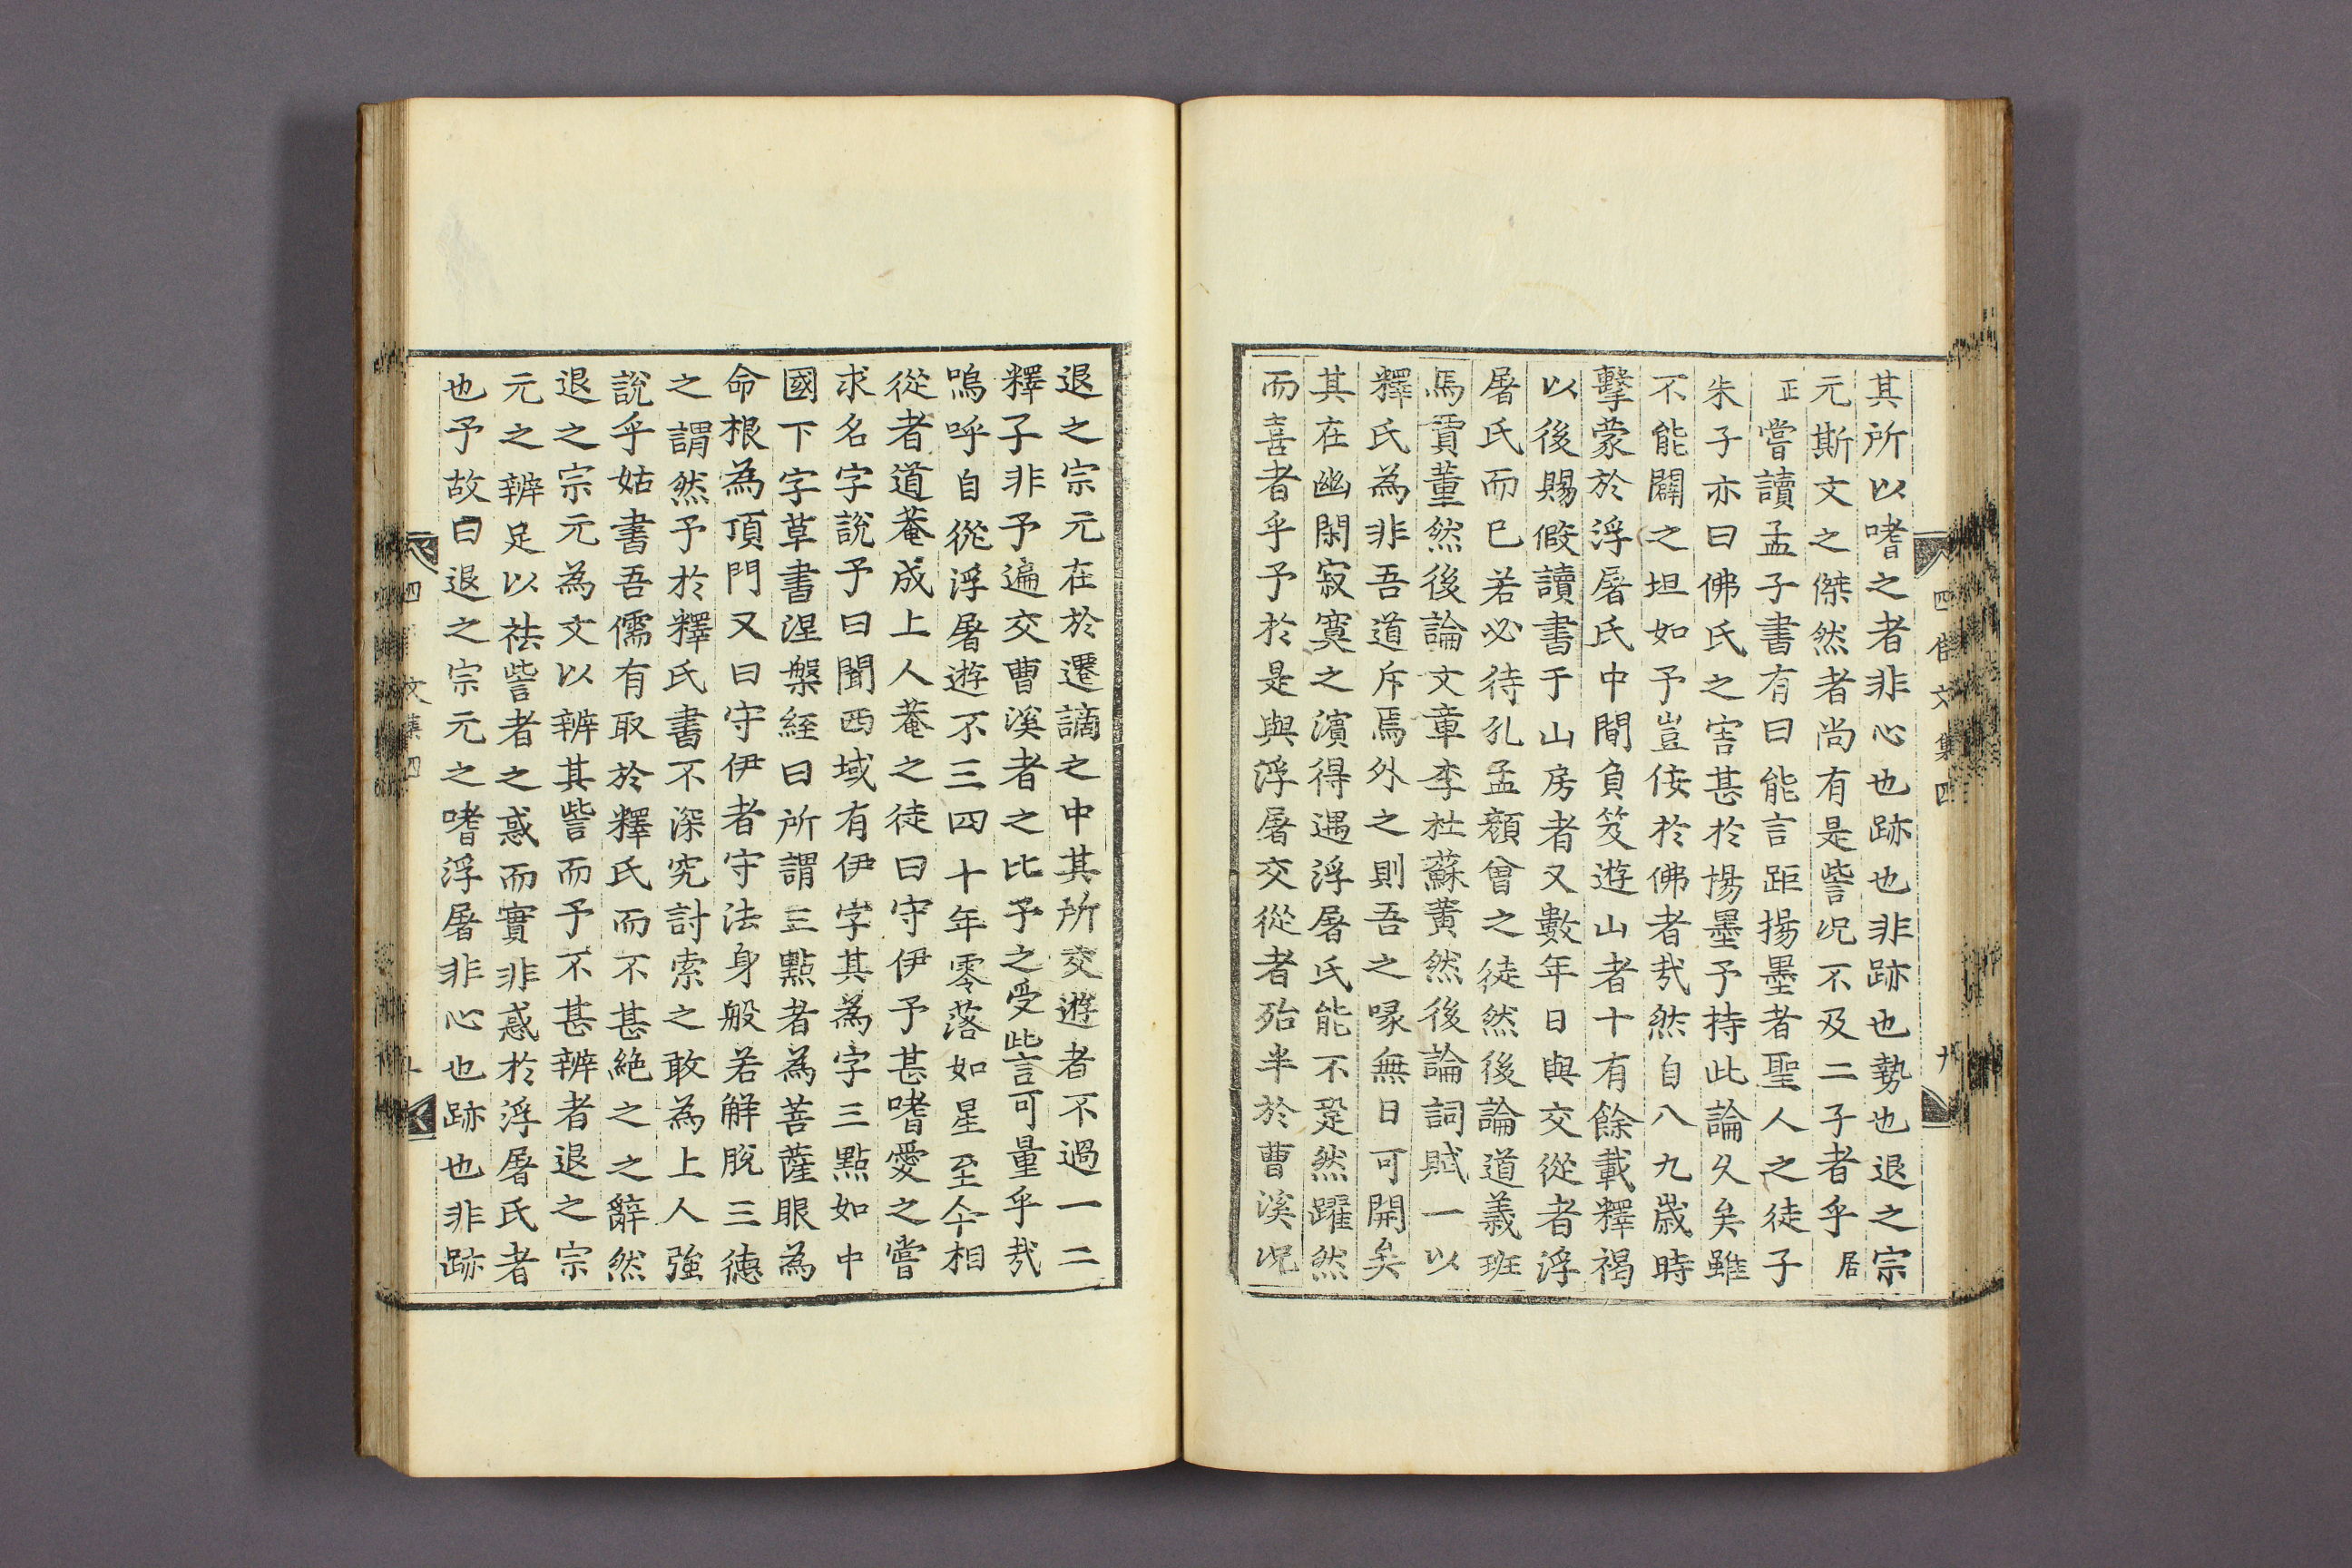 其所以嗜之者非心也跡也非跡也勢也退之宗
元斯文之傑然者尚有是訾况不及二子者乎居
正嘗讀孟子書有曰能言距揚墨者聖人之徒子
朱子亦曰佛氏之害甚於揚墨予持此論久矣雖
不能闢之坦如予豈侫於佛者㢤然自八九歲時
擊蒙於浮屠氏中間負笈遊山者十有餘載釋褐
以後賜假讀書于山房者又數年日與交從者浮
屠氏而已若必待孔孟顔曾之徒然後論道義班
馬賈董然後論文章李杜蘇黃然後論詞賦一以
釋氏為非吾道斥焉外之則吾之喙無日可開矣
其在幽閑寂寞之濱得遇浮屠氏能不跫然躍然
而喜者乎予於是與浮屠交從者殆半於曹溪况
四佳文集四
九
退之宗元在於遷謫之中其所交遊者不過一二
釋子非予遍交曹溪者之比予之受訾可量乎㢤
嗚呼自從浮屠遊不三四十年零落如星至今相
從者道菴成上人菴之徒曰守伊予甚嗜愛之嘗
求名字說予曰聞西域有伊字其為字三點如中
國下字草書涅槃経曰所謂三點者為菩薩眼為
命根為頂門又曰守伊者守法身般若解脫三德
之謂然予於釋氏書不深究討索之敢為上人強
說乎姑書吾儒有取於釋氏而不甚絶之之辭然
退之宗元為文以辨其訾而予不甚辨者退之宗
元之辨足以祛訾者之惑而實非惑於浮屠氏者
也予故曰退之宗元之嗜浮屠非心也跡也非跡
四 文集四